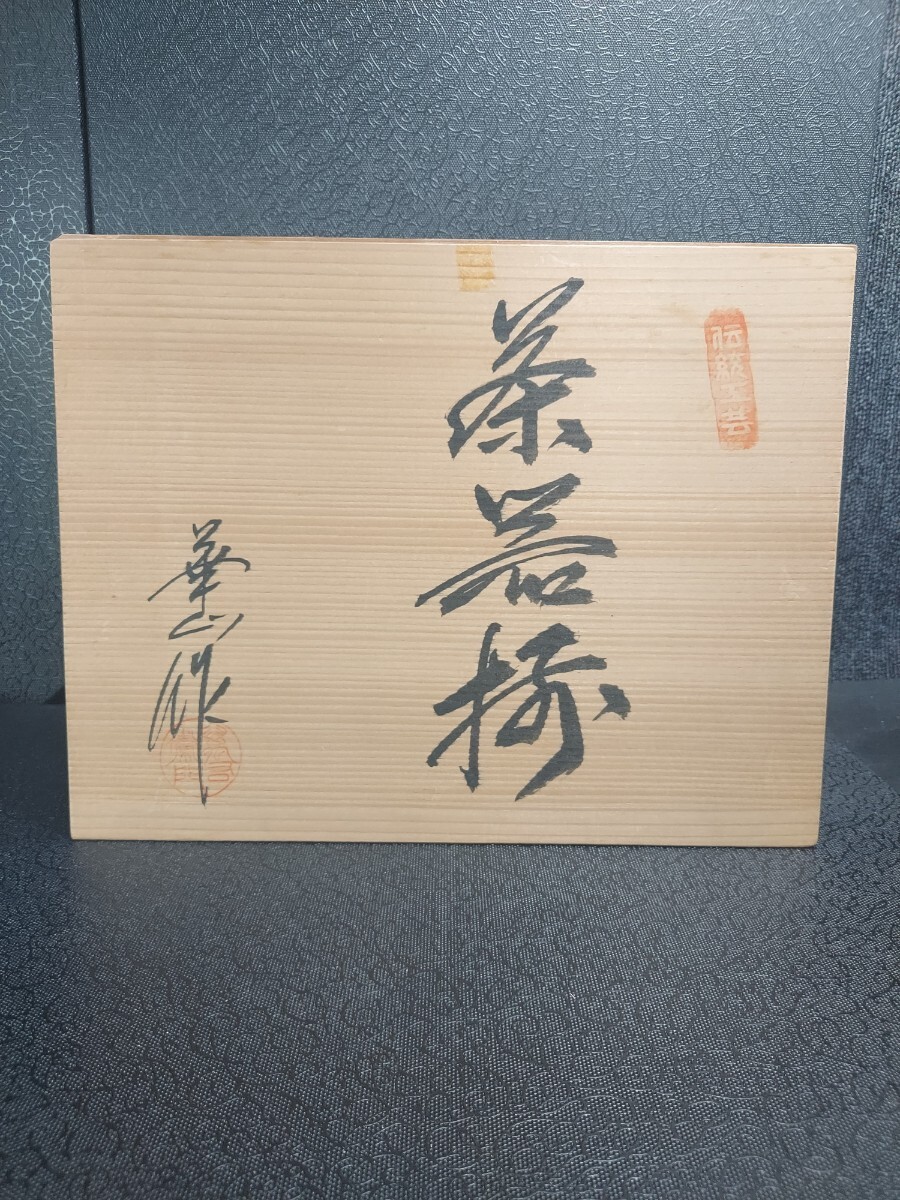 伝統工芸
茶器揃
華山作